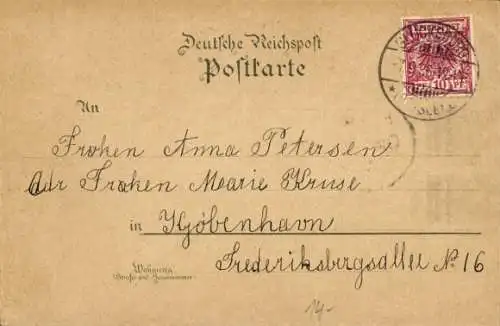 Deutsche Reichspost
Postkarte
An
Frøken Anna Petersen
Adr Frøken Marie Kruse
in Kjøbenhavn
Wohnung
(Straße und Hausnummer)
Frederiksbergsallee No 16
14-